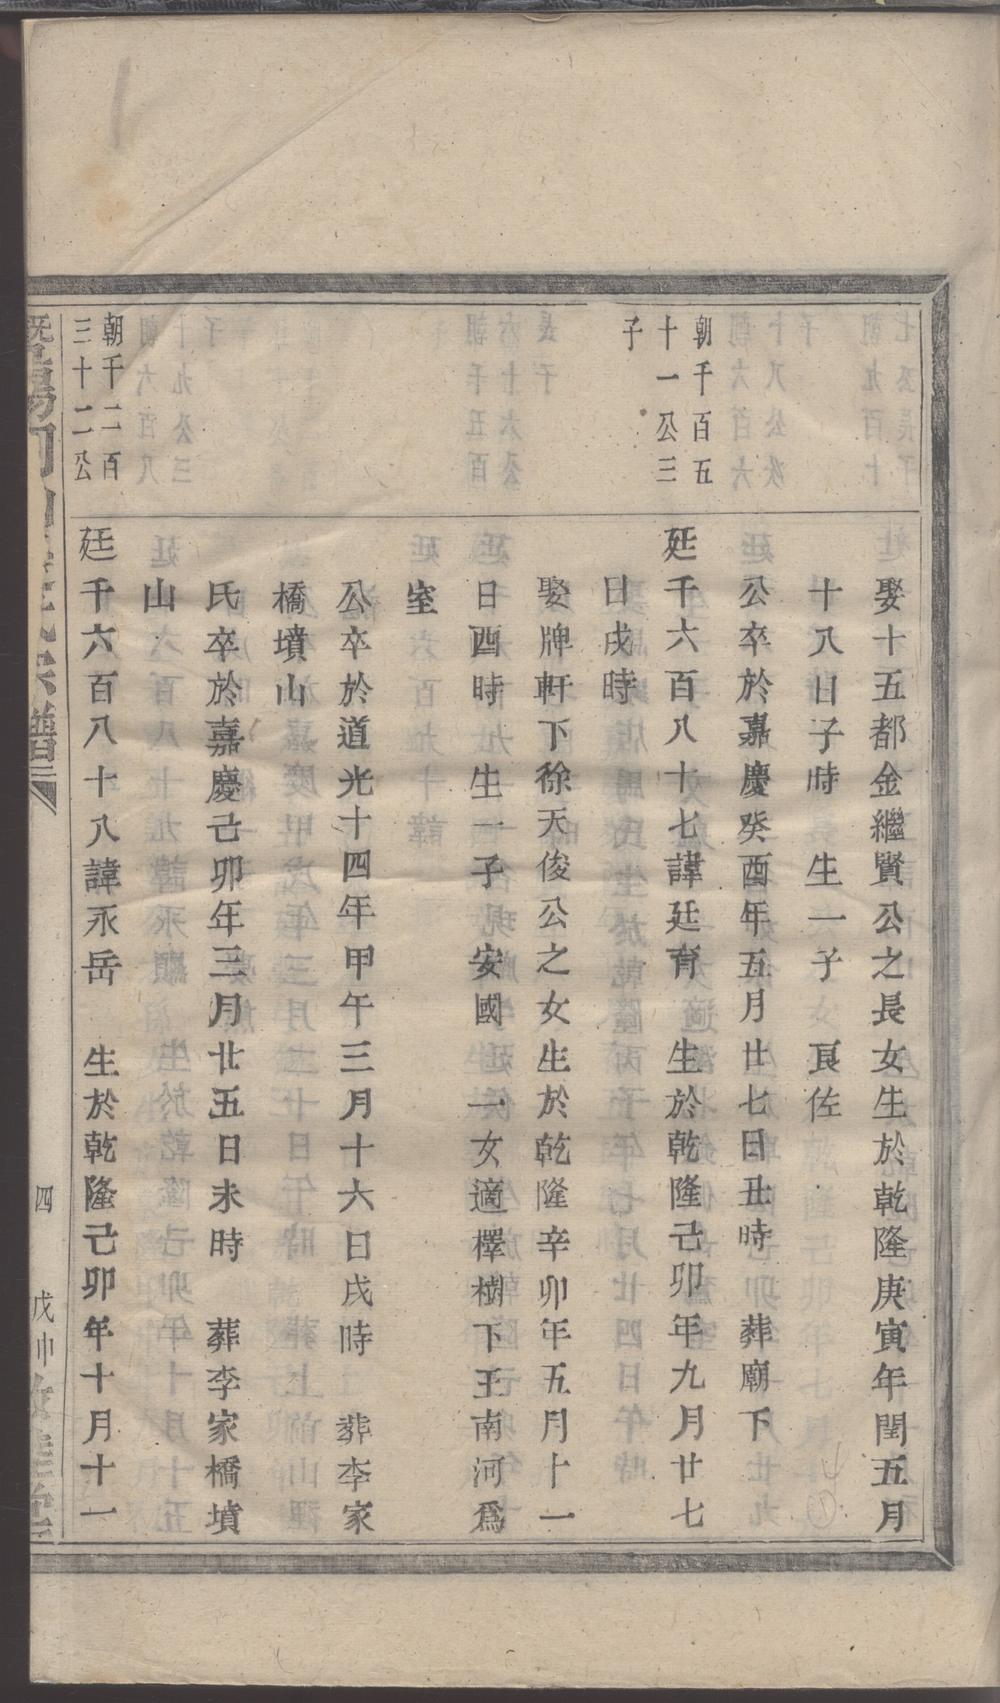 娶十五都金繼賢公之長女生於乾隆庚寅年閏五月
十八日子時　生一子　良佐
公卒於嘉慶癸酉年五月廿七日丑時　葬廟下
朝千百五
十一公三
子
廷千六百八十七諱廷育　生於乾隆己卯年九月廿七
日戌時
娶牌軒下徐天俊公之女生於乾隆辛卯年五月十一
日酉時　生一子　安國　一女適檡樹下王南河爲
室
公卒於道光十四年甲午三月十六日戌時　葬李家
橋墳山
氏卒於嘉慶己卯年三月廿五日未時　葬李家橋墳
山
朝千二百
三十二公
廷千六百八十八諱永岳　生於乾隆己卯年十月十一
暨陽　宗譜
四
戊申